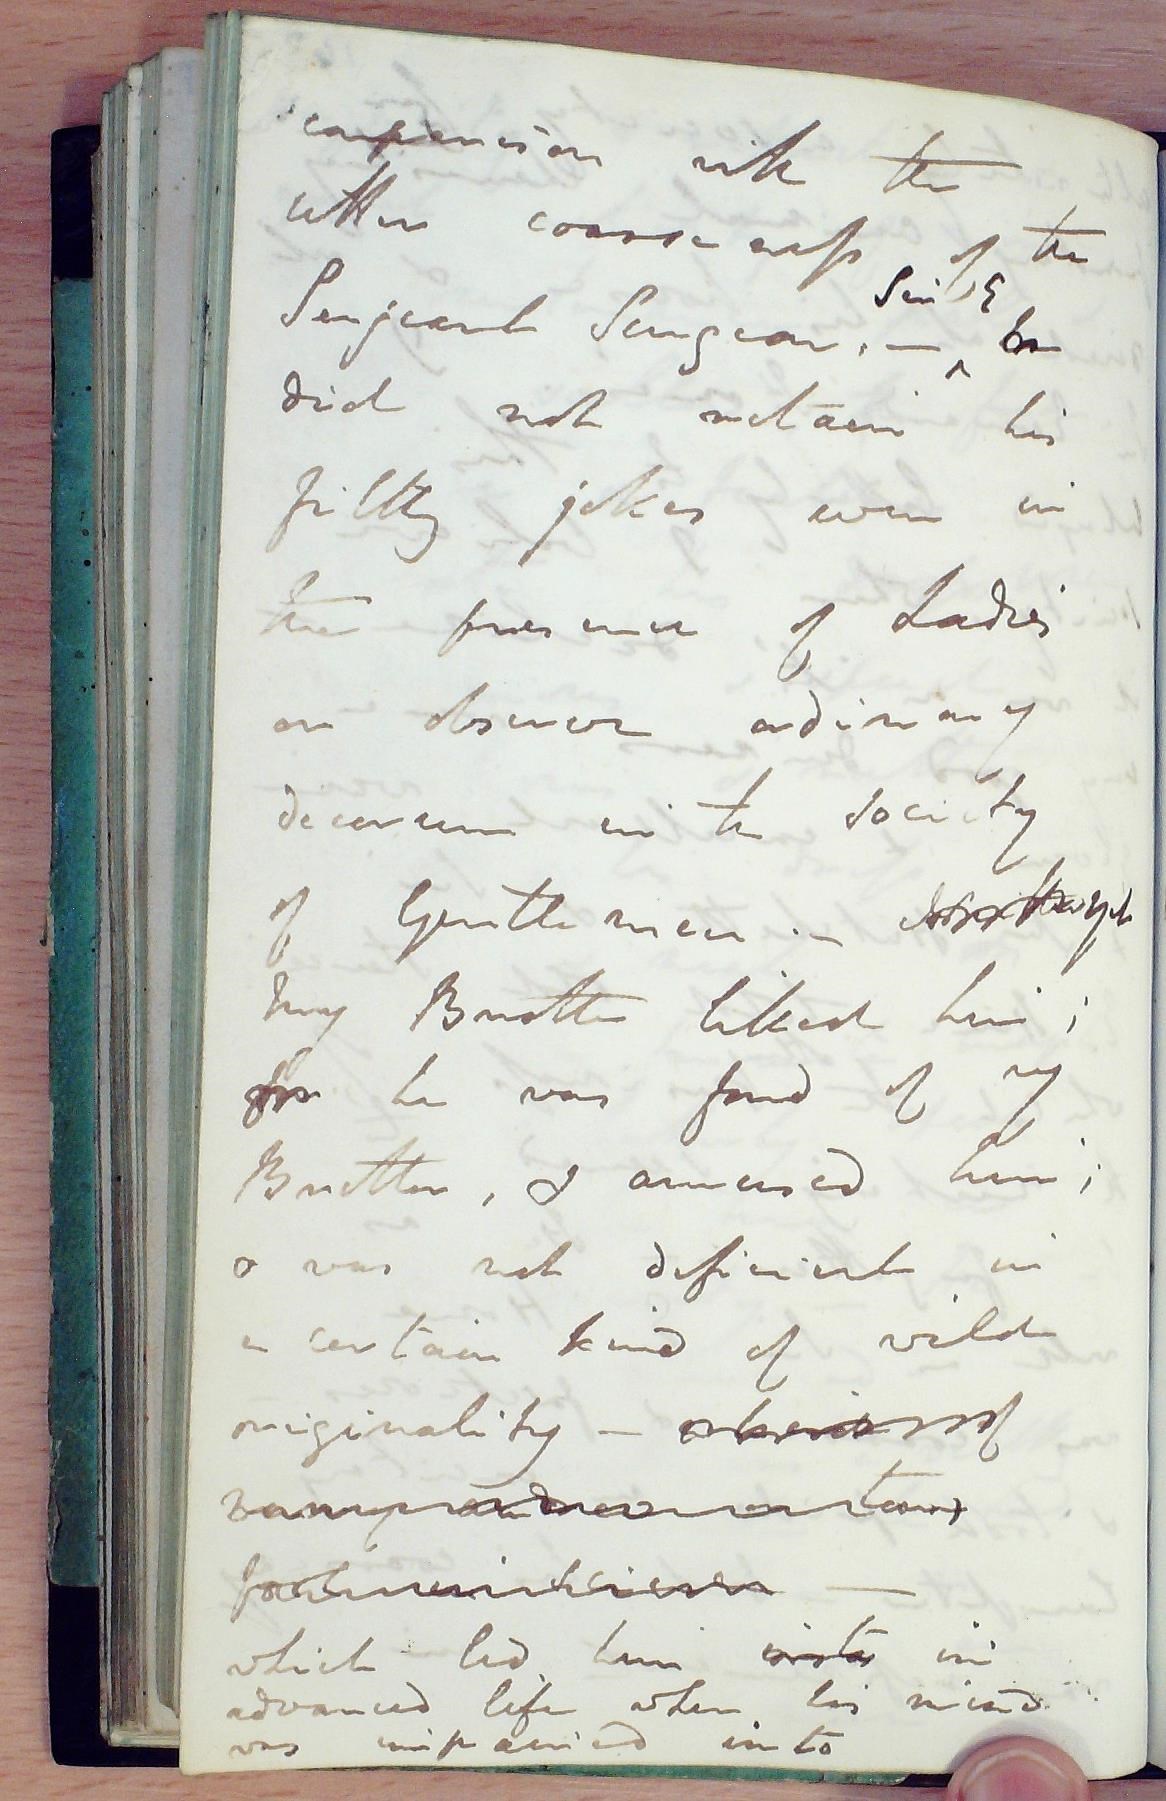 comparison with the
utter coarseness of the
Serjeant Surgeon. — Sir E
did not restrain his
filthy jokes even in
the presence of Ladies
or observe ordinary
decorum in the society
of Gentlemen. —
My Brother liked him;
for he was fond of my
Brother, & amused him;
& was not deficient in
a certain kind of wild
originality —
which led him into in
advanced life when his mind
was impaired into